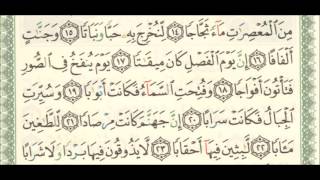 مِنَ ٱلْمُعْصِرَٰتِ مَآءً ثَجَّاجًا ١٤ لِّنُخْرِجَ بِهِۦ حَبًّا وَنَبَاتًا ١٥ وَجَنَّٰتٍ
أَلْفَافًا ١٦ إِنَّ يَوْمَ ٱلْفَصْلِ كَانَ مِيقَٰتًا ١٧ يَوْمَ يُنفَخُ فِى ٱلصُّورِ
فَتَأْتُونَ أَفْوَاجًا ١٨ وَفُتِحَتِ ٱلسَّمَآءُ فَكَانَتْ أَبْوَٰبًا ١٩ وَسُيِّرَتِ
ٱلْجِبَالُ فَكَانَتْ سَرَابًا ٢٠ إِنَّ جَهَنَّمَ كَانَتْ مِرْصَادًا ٢١ لِّلطَّٰغِينَ
مَـَٔابًا ٢٢ لَّٰبِثِينَ فِيهَآ أَحْقَابًا ٢٣ لَّا يَذُوقُونَ فِيهَا بَرْدًا وَلَا شَرَابًا